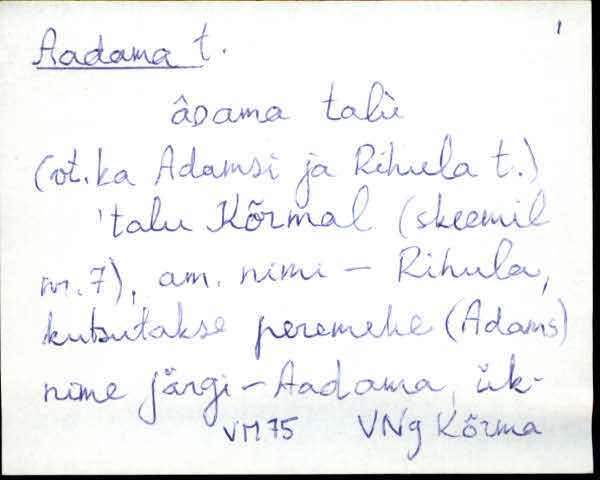 1
Aadama t.
âᴅama talù
(vt. ka Adamsi ja Rihula t.)
'talu Kõrmal (skeemil
nr. 7), am. nimi – Rihula,
kutsutakse peremehe (Adams)
nime järgi – Aadama, ük-
VM 75 VNg Kõrma